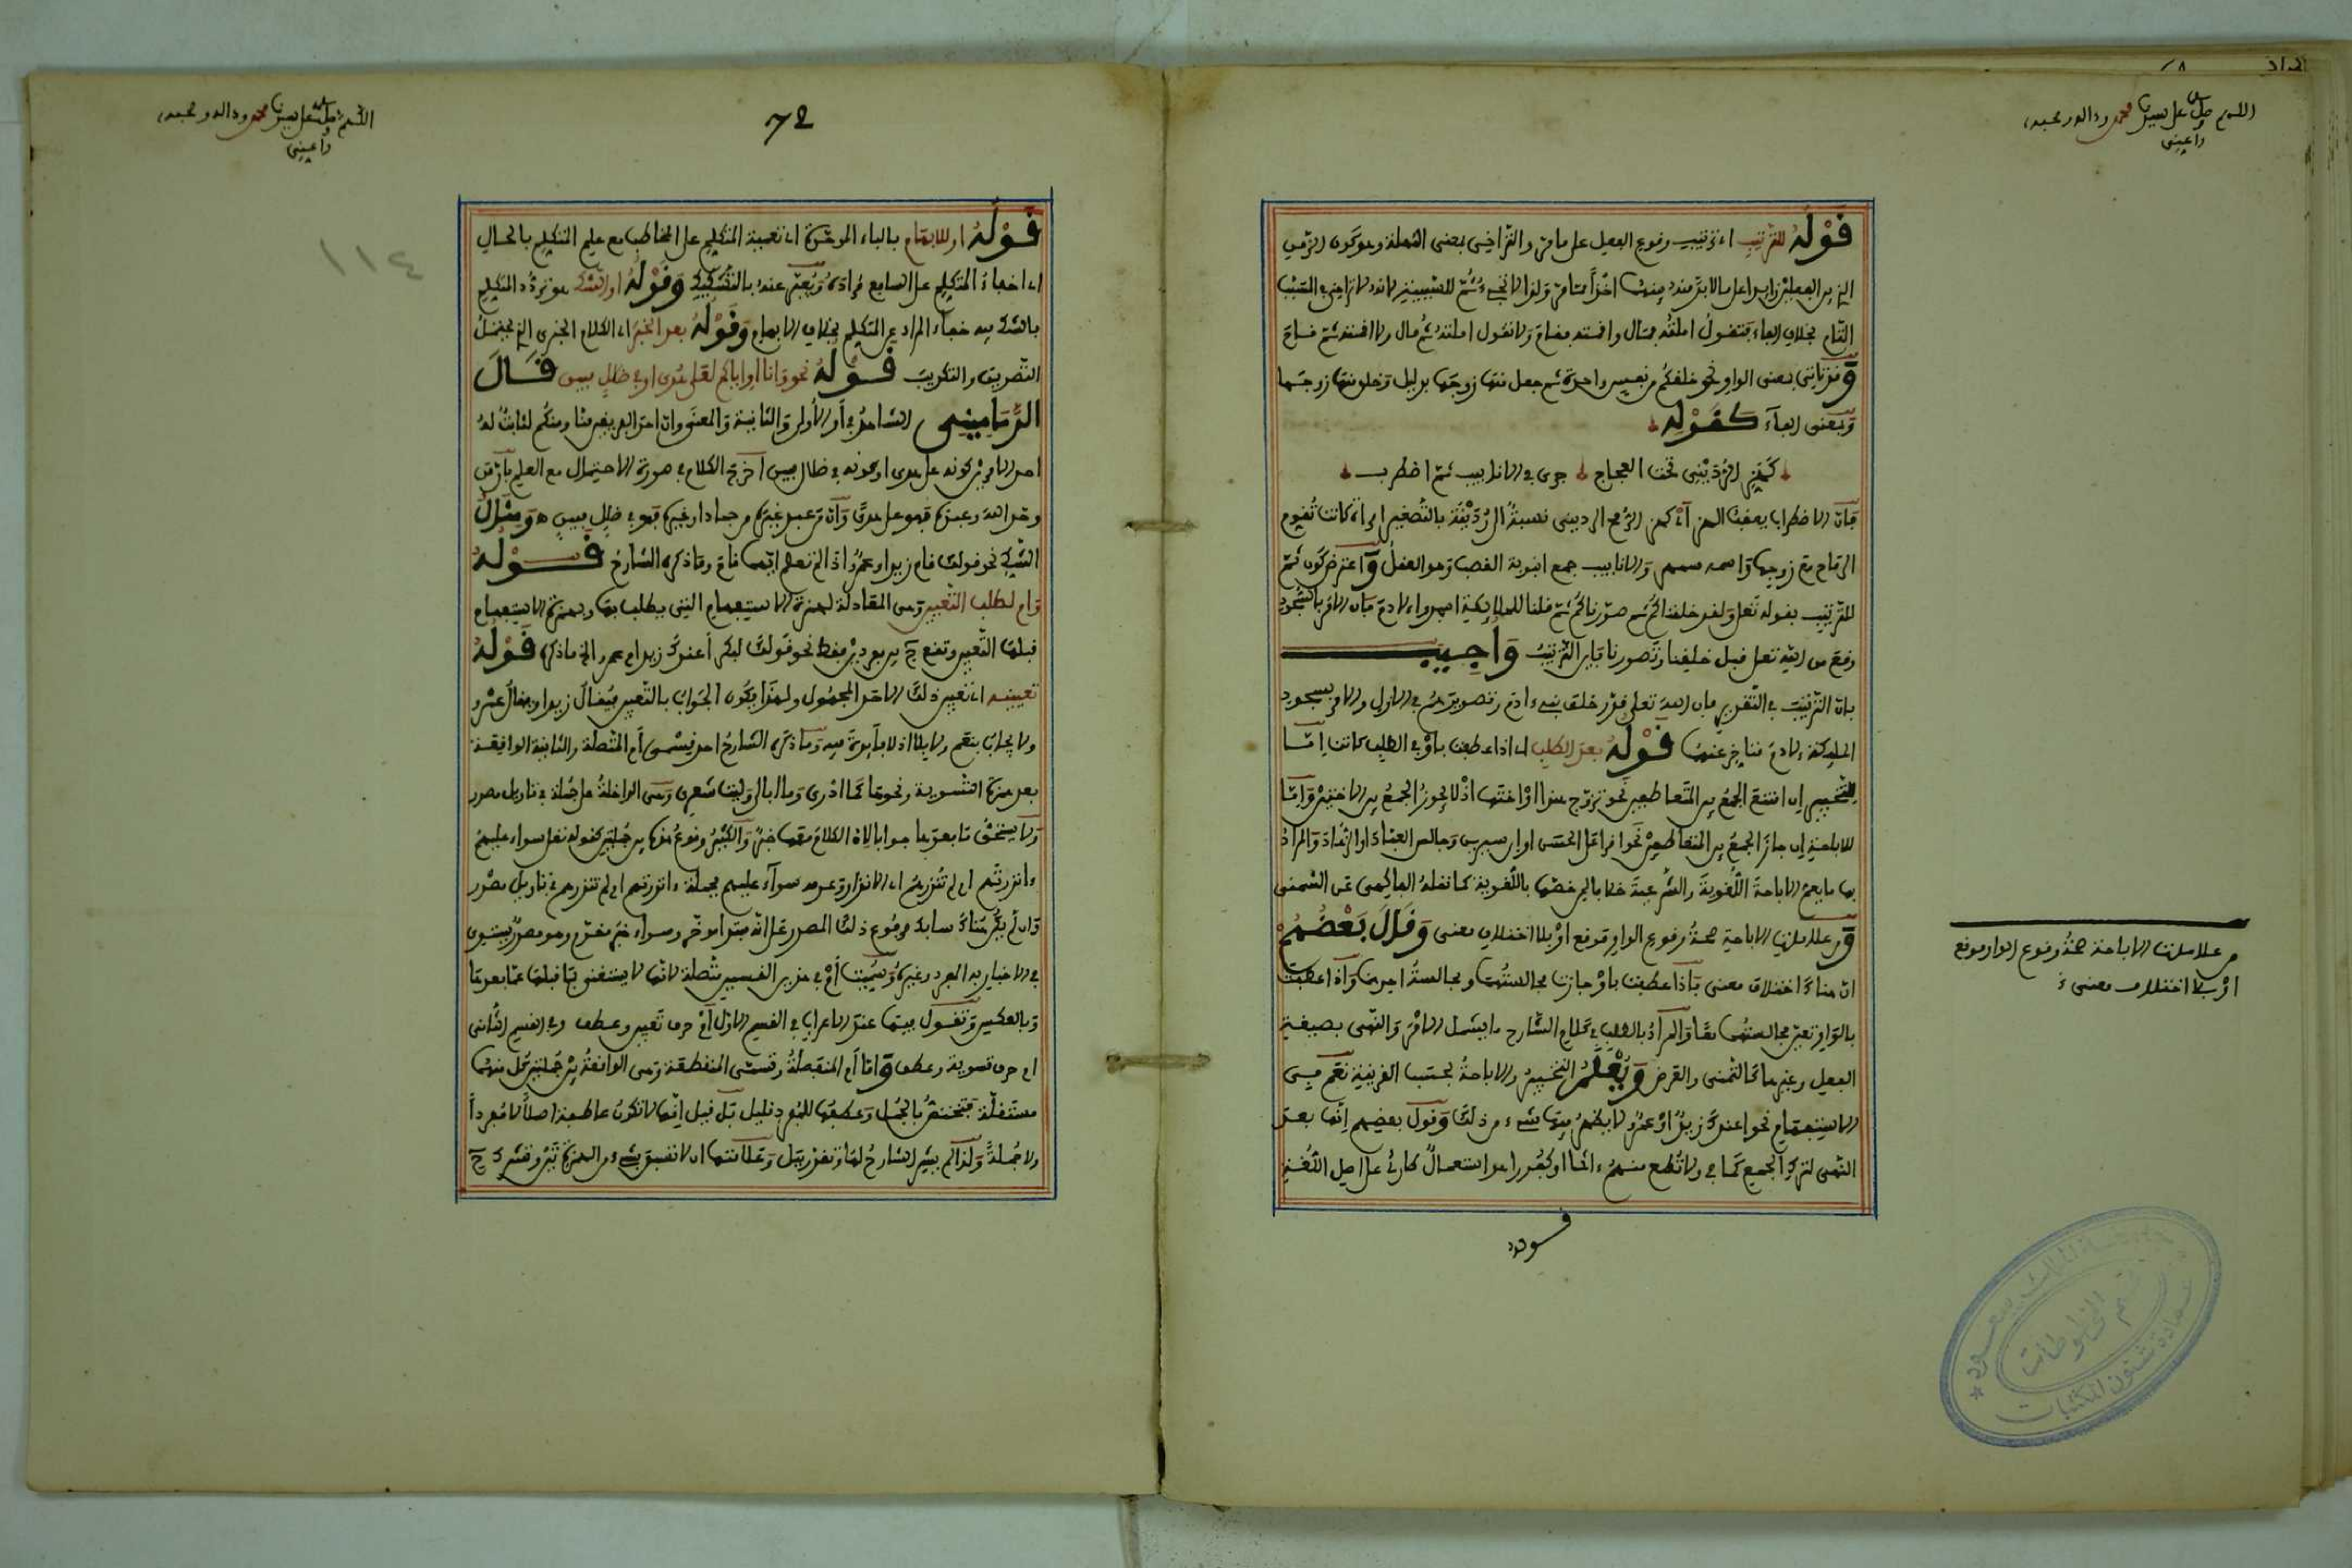 اللهم صل على سيدنا محمد وءاله وصحبه
قَوْلُهُ للترتيب اي ترتيب وقوع الفعل على ما مر والتراخي بمعنى المهلة وهو كون الزمن
الذي بين الفعلين زايدا على ما لا بد منه
التام بخلاف الفاء فتقول املته فمال واقمته فقام ولا تقول املته ثم مال ولا اقمته ثم قام
وقد تاتي بمعنى الواو نحو خلقكم من نفس واحدة ثم جعل منها زوجها بدليل وخلق منها زوجها
وبمعنى الفاء كَقَوْلِهِ
كهز الرديني تحت العجاج جرى في الانابيب ثم اضطرب
فان الاضطراب يعقب الهز اي كهز الرمح الرديني نسبة الى ردينة بالتصغير امراة كانت تقوم
الرماح مع زوجها واسمه سمهر والانابيب جمع انبوبة القصب وهو العقل واعترض كون ثم
للترتيب بقوله تعلى ولقد خلقناكم ثم صورناكم ثم قلنا للملايكة اسجدوا لادم فان الامر بالسجود
وقع من الله تعلى قبل خلقنا وتصويرنا فاين الترتيب وَأُجِيبَ
بان الترتيب في التقدير فان الله تعلى قدر خلق بني ءادم وتصويرهم في الازل والامر بسجود
الملايكة لادم متاخر عنهما قَوْلُهُ بعد الطلب اي اذا عطفت باو في الطلب كانت اما
للتخيير ان امتنع الجمع بين المتعاطفين نحو تزوج هندا او اختها اذ لا يجوز الجمع بين الاختين واما
للاباحة ان جاز الجمع بين المتعاطفين نحو اقرا على الحسن او ابن سيرين وجالس العباد او الزهاد والمراد
بها ما يعم الاباحة اللغوية والشرعية خلافا لمن خصها باللغوية كما نقله الفاكهي عن الشمني
وَمن علامات الاباحة صحة وقوع الواو موقع او بلا اختلاف معنى وَقَالَ بَعْضُهُمْ
ان هناك اختلاف معنى فاذا عطفت باو جازت مجالستهما ومجالسة احدهما واذا عطفت
بالواو تعين مجالستهما معا والمراد بالطلب في كلام الشارح ما يشمل الامر والنهي بصيغة
الفعل وغيرها كالتمني والعرض وَيُعْلَمُ التخيير والاباحة بحسب القرينة نعم في
الاستفهام نحو اعندك زيد او عمرو لا يظهر فيها شيء من ذلك وقول بعضهم انها بعد
النهي لترك الجميع كما في ولا تطع منهم ءاثما او كفورا هو استعمال طارئ على اصل اللغة
قوله
من علامات الاباحة صحة وقوع الواو موقع
او بلا اختلاف معنى
قسم المخطوطات
عمادة شئون المكتبات
٧٤
١١٤
اللهم صل على سيدنا محمد وءاله وصحبه
قَوْلُهُ او للابهام بالباء الموحدة اي تعمية المتكلم على المخاطب مع علم المتكلم بالحال
اي اخفاء المتكلم على السامع مراده ويعبر عنه بالتشكيك وَقَوْلُهُ او الشك هو تردد المتكلم
بالشك فيه خفاء المراد عن المتكلم بخلاف الابهام وَقَوْلُهُ بعد الخبر اي الكلام الخبري الذي يحتمل
التصديق والتكذيب قَوْلُهُ نحو وانا او اياكم لعلى هدى او في ضلل مبين قَالَ
الدَّمَامِينِي الشاهد في او الاولى والثانية والمعنى وان احد الفريقين منا ومنكم لثابت له
احد الامرين كونه على هدى او كونه في ضلال مبين اخرج الكلام في صورة الاحتمال مع العلم بان من
وحد الله وعبده فهو على هدى وان من عبد غيره من جماد او غيره فهو في ضلل مبين وَمِثَالُ
الشك نحو قولك قام زيد او عمرو اذا لم تعلم ايهما قام وما ذكره الشارح قَوْلُهُ
وام لطلب التعيين وهي المعادلة لهمزة الاستفهام التي يطلب بها وبهمزة الاستفهام
قبلها التعيين وتقع ح بين مفردين فقط نحو قولك لبكر أعندك زيد ام عمرو الخ ما ذكره قَوْلُهُ
تعيينه اي تعيين ذلك الاحد المجهول ولهذا يكون الجواب بالتعيين فيقال زيد او يقال عمرو
ولا يجاب بنعم ولا بلا اذ لا فايدة فيه وما ذكره الشارح احد قسمي ام المتصلة والثانية الواقعة
بعد همزة التسوية ونحوها كما ادري وما ابالي وليت شعري وهي الداخلة على جملة في تاويل مصدر
ولا يستحق ما بعدها جوابا لان الكلام معها خبر والكثير وقوع همزة بين جملتين كقوله تعلى سواء عليهم
ءانذرتهم ام لم تنذرهم اي الانذار وعدمه سواء عليهم فجملة ءانذرتهم ام لم تنذرهم في تاويل مصدر
وان لم يكن هناك سابك مرفوع ذلك المصدر على انه مبتدا موخر وسواء خبر مقدم وهو مصدر يستوي
في الاخبار به المفرد وغيره وسميت ام في هذين القسمين متصلة لانها لا يستغنى بما قبلها عما بعدها
وبالعكس وتقول فيها عند الاعراب في القسم الاول ام حرف تعيين وعطف وفي القسم الثاني
ام حرف تسوية وعطف واما ام المنفصلة وتسمى المنقطعة وهي الواقعة بين جملتين كل منهما
مستقلة فتختص بالجمل وعطفها للمفرد قليل بل قيل انها لا تكون عاطفة اصلا لا مفردا
ولا جملة ولذا لم يشر الشارح لها وتقدر ببل وعلامتها ان لا تسبق بشيء من الهمزة